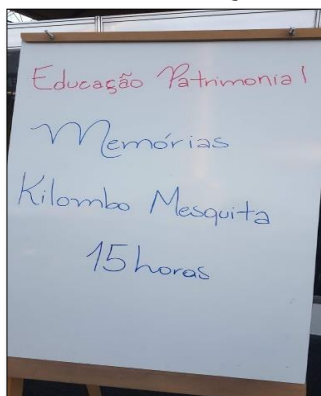 Educação Patrimonial
Memórias
Kilombo Mesquita
15 horas